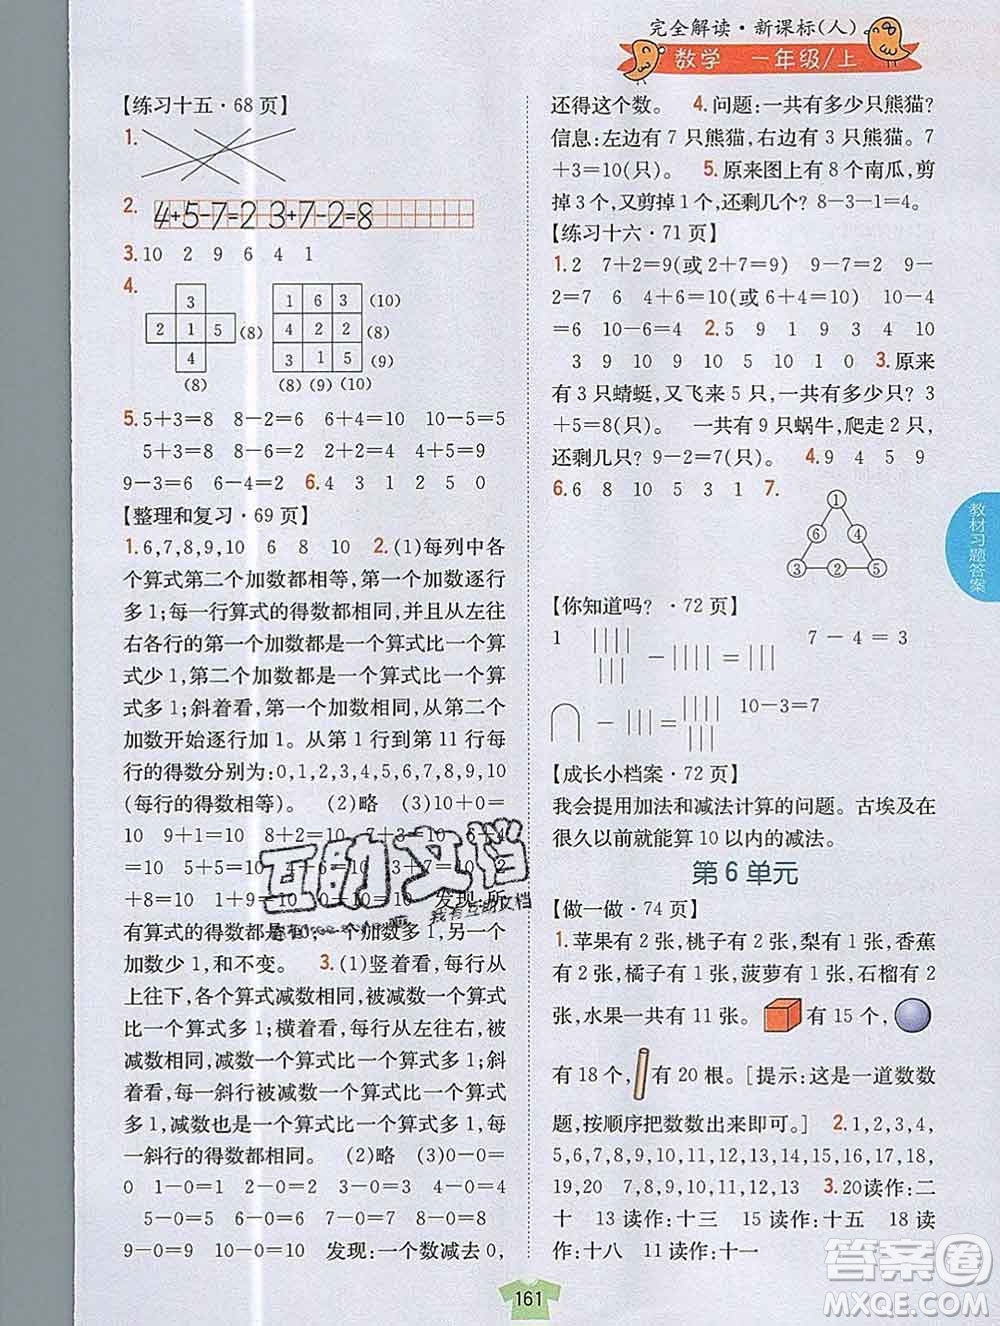 完全解读·新课标(人)
数学 一年级/上
【练习十五·68 页】
1.
2. 4+5-7=2 3+7-2=8
3. 10 2 9 6 4 1
4.
3
2 1 5 (8)
4
(8)
1 6 3 (10)
4 2 2 (8)
3 1 5 (9)
(8) (9) (10)
5. 5+3=8 8-2=6 6+4=10 10-5=5
5+3=8 9-7=2 8+2=10 6-6=0
9-3=6 7-6=1 6. 4 3 4 5 0
【整理和复习·69 页】
1. 6,7,8,9,10 6 8 10 2. (1)每列中各
个算式第二个加数都相等,第一个加数逐行
多 1;每一行算式的得数都相同,并且从左往
右各行的第一个加数都是一个算式比一个算
式少 1,第二个加数都是一个算式比一个算
式多 1;斜着看,第一个加数都相同,第二个
加数开始逐行加 1。从第 1 行到第 11 行每
行的得数分别为:0,1,2,3,4,5,6,7,8,9,10
(每行的得数相等)。 (2)略 (3)10+0=
10 9+1=10 8+2=10 7+3=10 6+4
=10 5+5=10
+6=10 3+7=10 2
+8=10 1+9=10 0+10=10 发现:所
有算式的得数都是 10,一个加数多 1,另一个
加数少 1,和不变。 3. (1)竖着看,每行从
上往下,各个算式减数相同,被减数一个算式
比一个算式多 1;横着看,每行从左往右,被
减数相同,减数一个算式比一个算式多 1;斜
着看,每一斜行的被减数一个算式比一个算式
多 1,减数也是一个算式比一个算式多 1,每
一斜行的得数都相同。 (2)略 (3)0-0=
0 1-0=1 2-0=2 3-0=3 4-0=4
5-0=5 6-0=6 7-0=7 8-0=8
9-0=9 10-0=10 发现:一个数减去 0,
还得这个数。 4. 问题:一共有多少只熊猫?
信息:左边有 7 只熊猫,右边有 3 只熊猫。7
+3=10(只)。 5. 原来图上有 8 个南瓜,剪
掉 3 个,又剪掉 1 个,还剩几个? 8-3-1=4。
【练习十六·71 页】
1. 2 7+2=9(或 2+7=9) 9-7=2 9-
2=7 6 4+6=10(或 6+4=10) 10-4
=6 10-6=4 2. 5 9 1 9 3 4 10
3 9 10 9 10 5 10 1 0 3. 原来
有 3 只蜻蜓,又飞来 5 只,一共有多少只? 3
+5=8(只)。 一共有 9 只蜗牛,爬走 2 只,
还剩几只? 9-2=7(只)。 4. 9 4 5 9
6. 6 8 10 10 5 7.
1
6 4
3 2 5
【你知道吗?·72 页】
1 - = 7 - 4 = 3
- = 10-3=7
【成长小档案·72 页】
我会提用加法和减法计算的问题。古埃及在
很久以前就能算 10 以内的减法。
第 6 单元
【做一做·74 页】
1. 苹果有 2 张,桃子有 2 张,梨有 1 张,香蕉
有 2 张,橘子有 1 张,菠萝有 1 张,石榴有 2
张,水果一共有 11 张。 有 15 个,
有 18 个, 有 20 根。[提示:这是一道数数
题,按顺序把数数出来即可。] 2. 1,2,3,4,
5,6,7,8,9,10,11,12,13,14,15,16,17,18,
19,20 7,8,9,10,11,12,13 3. 20 读作:二
十 13 读作:十三 15 读作:十五 18 读
作:十八 11 读作:十一
教材习题答案
161
互助文档
我有互助文档
答案圈
MXQE.COM